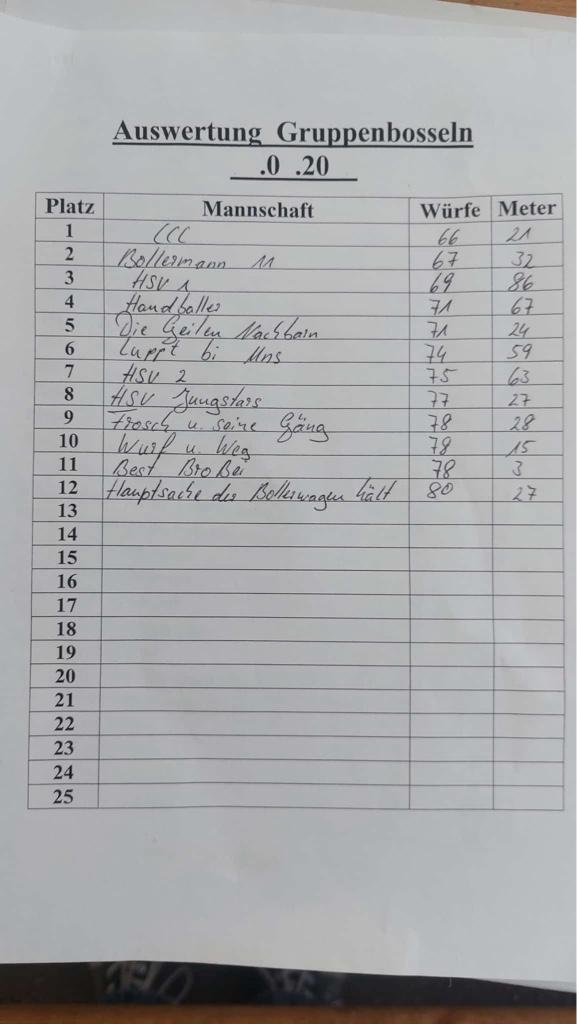 Auswertung Gruppenbosseln
.0 .20
Platz Mannschaft Würfe Meter
1 CCC 66 21
2 Bollermann 11 67 32
3 HSV 1 69 86
4 Handballer 71 67
5 Die Geilen Nachbarn 71 24
6 Luppt bi Uns 74 59
7 HSV 2 75 63
8 HSV Jungstars 77 27
9 Frosch u. seine Gäng 78 28
10 Wurf u. Weg 78 15
11 Best BroBei 78 3
12 Hauptsache der Bollerwagen hält 80 27
13
14
15
16
17
18
19
20
21
22
23
24
25